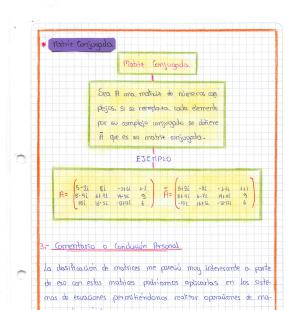 Matriz Conjugada
Matriz Conjugada
Sea A una matriz de números com
plejos, si se remplaza cada elemento
por su complejo conjugado se obtiene
Ā que es su matriz conjugada.
EJEMPLO
A=
Ā=
3.- Comentario o Conclusión Personal
La clasificación de matrices me pareció muy interesante a parte
de eso con estas matrices podríamos aplicarlas en los siste
mas de ecuaciones permitiéndonos realizar operaciones de ma-